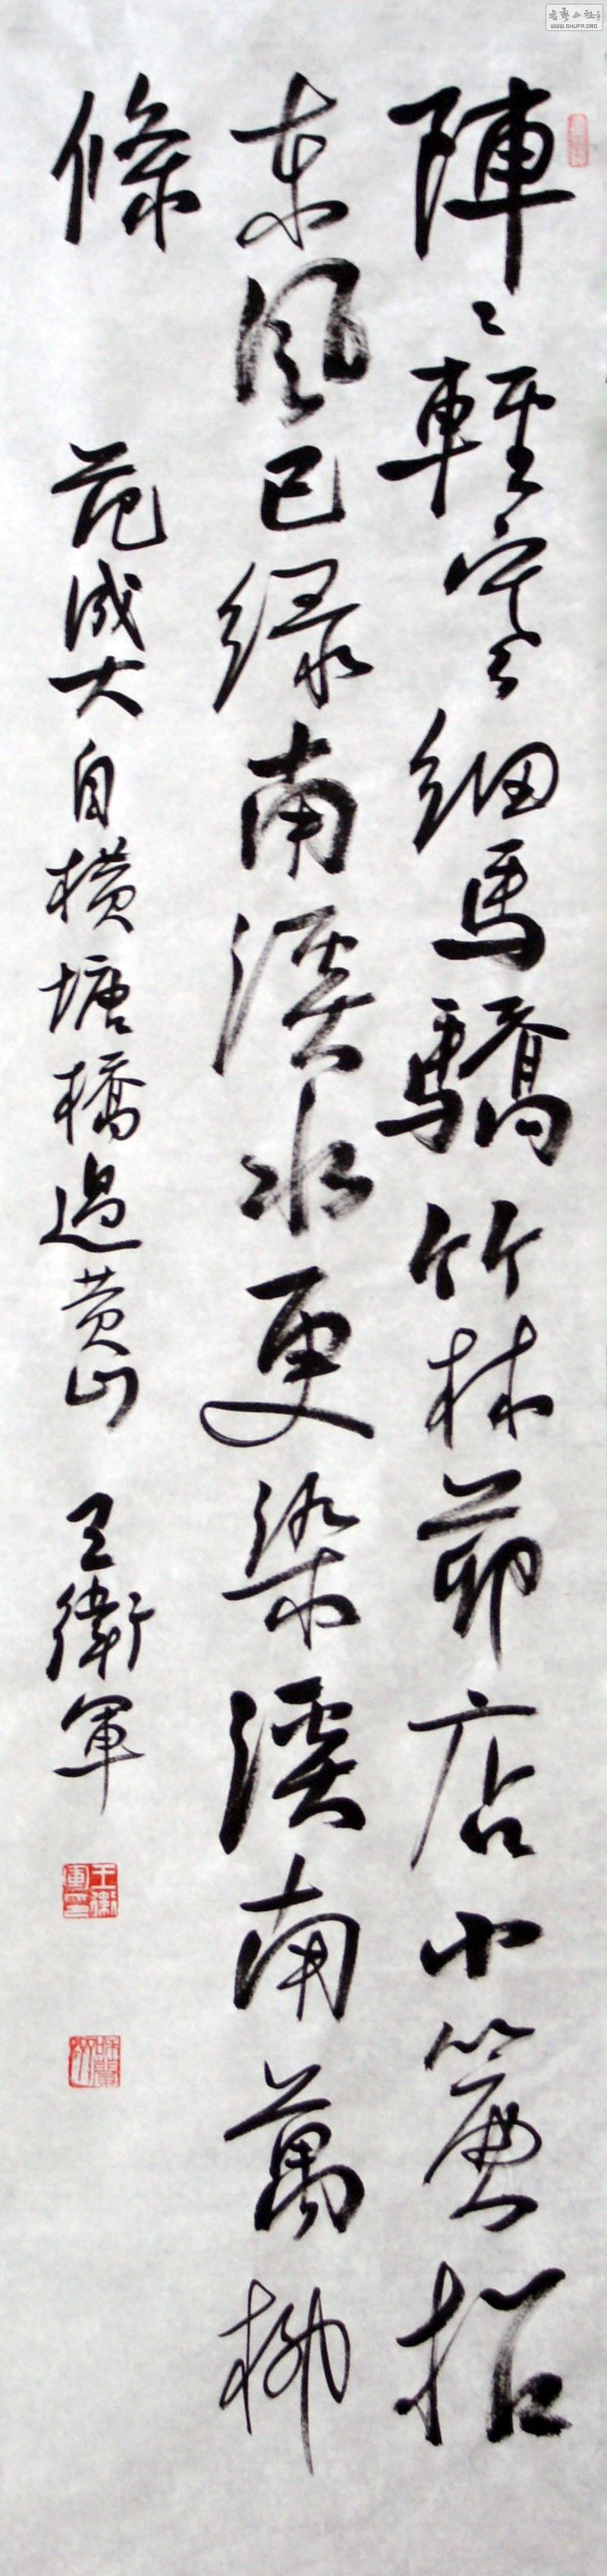 陣〻輕寒細馬驕竹林茆店小簾招
東風已绿南溪水更染溪南萬柳
條
范成大自橫塘橋過黄山
王衛軍
WWW.SHUFA.ORG